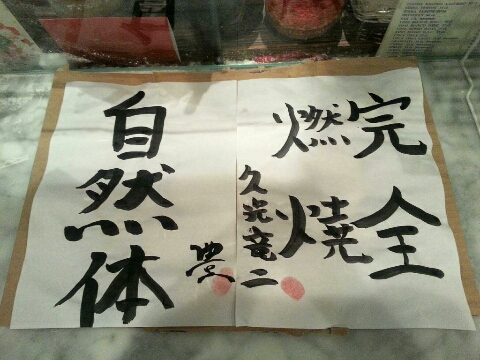 完全
燃焼
久光竜二
自然体
豊